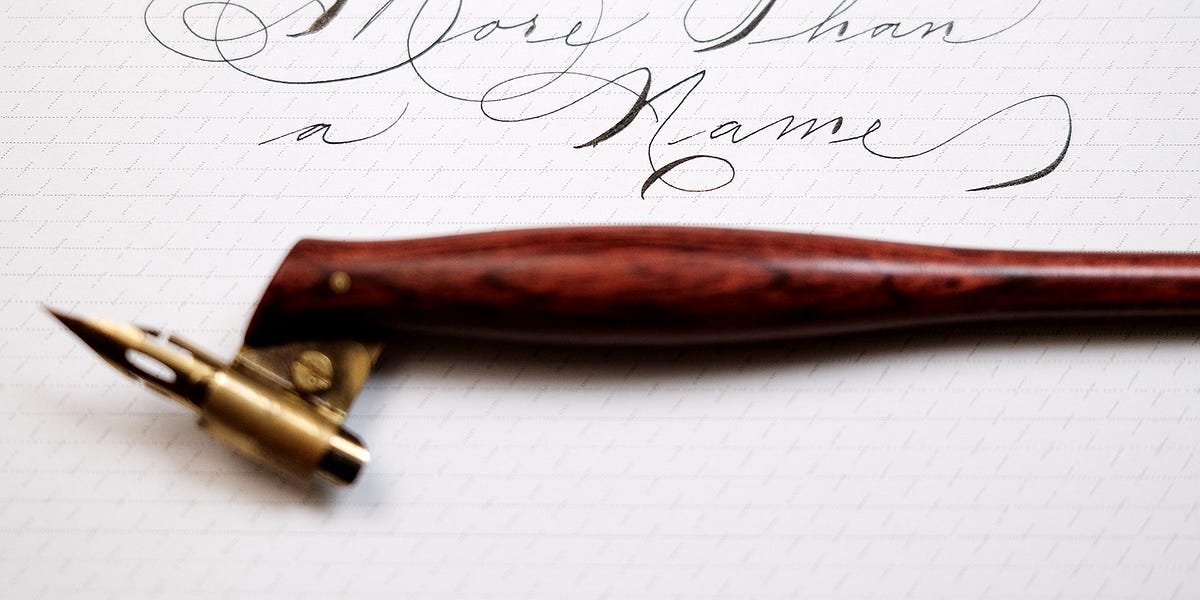 More Than
a Name